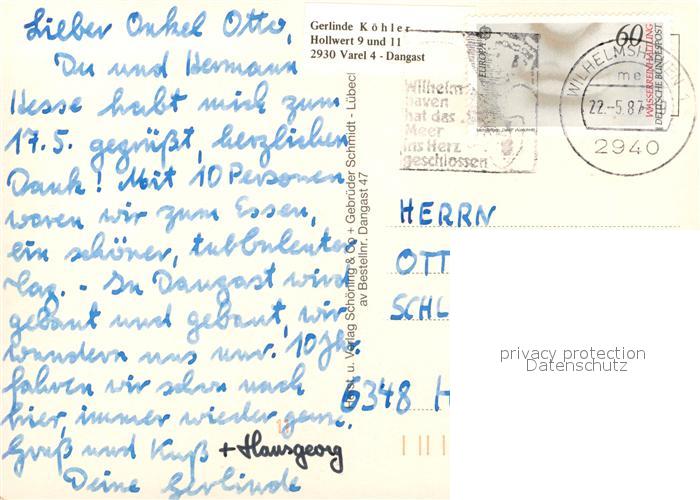 Lieber Onkel Otto,
Du und Hermann
Hesse habt mich zum
17.5. gegrüßt, herzlichen
Dank! Mit 10 Personen
waren wir zum Essen,
ein schöner, turbulenter
Tag. - In Dangast wird
gebaut und gebaut, wir
wundern uns nur. 10 Jhr.
fahren wir schon nach
hier, immer wieder gerne.
Gruß und Kuß + Hansgeorg
Deine Gerlinde
Gerlinde Köhler
Hollwert 9 und 11
2930 Varel 4 - Dangast
u. Verlag Schöning & Co + Gebrüder Schmidt - Lübeck
av Bestellnr. Dangast 47
Wilhelms
haven
hat das
Meer
ins Herz
geschlossen
EUROPA
60
WASSERREINHALTUNG
DEUTSCHE BUNDESPOST
WILHELMSHAVEN 1
me
22.-5.87
2940
HERRN
OTT
SCHL
6348 H
privacy protection
Datenschutz